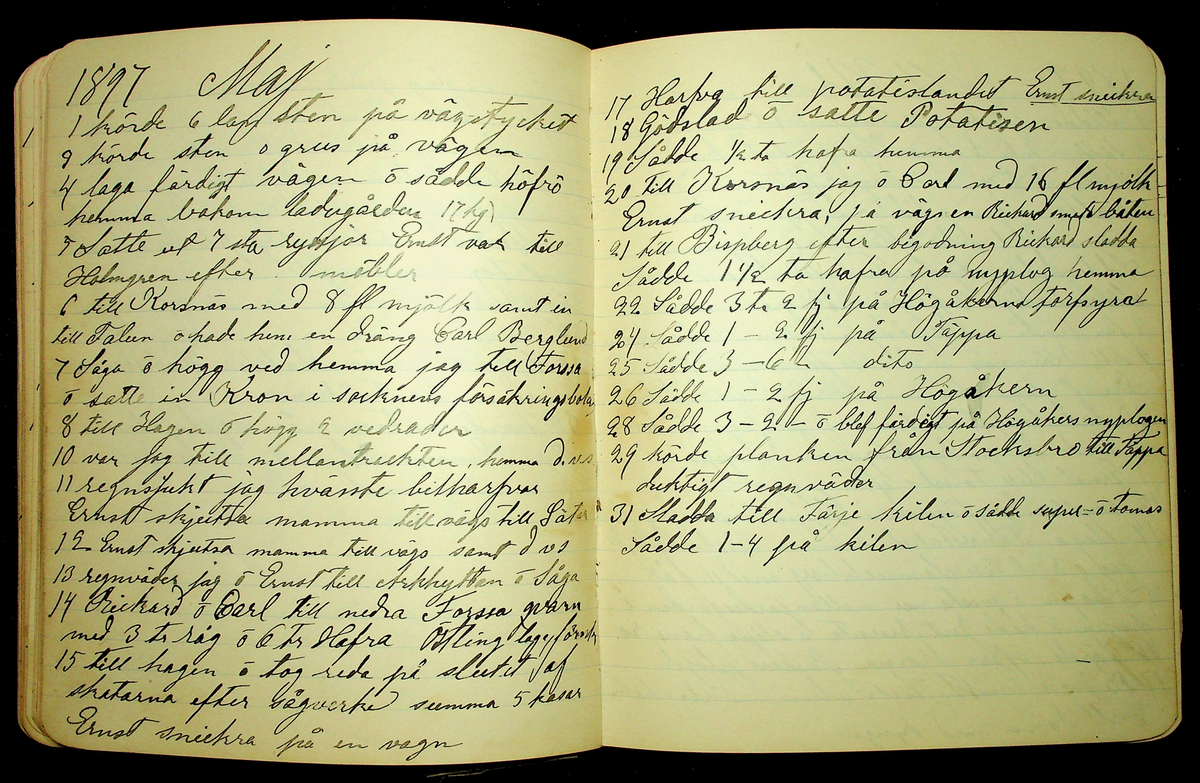 1897 Maj
1 körde 6 lass sten på vägstycket
3 körde sten o grus på vägen
4 laga färdigt vägen ō sådde höfrö
hemma bakom ladugården 17 kg
5 Satte ut 7 sta ryssjor Ernst var till
Holmgren efter möbler
6 till Korsnäs med 8 fl mjölk samt in
till Falun o hade hem en dräng Carl Berglund
7 Såga ō högg ved hemma jag till Forssa
ō satte in Kron i socknens försäkringsbola
8 till Hagen ō högg 2 vedrader
10 var jag till mellantrackten, hemma d.v.s
11 regnsjukt jag hvässte billharfvar
Ernst skjutsa mamma tillvägs till Säter
12 Ernst skjutsa mamma till vägs samt d v s
13 regnväder jag ō Ernst till Arkhyttan ō Såga
14 Rickard ō Carl till nedra Forssa qvarn
med 3 tr råg ō 6 tr Hafra Östling
15 till hagen ō tog reda på slutet af
skatarna efter sågverke summa 5 kasar
Ernst snickra på en vagn
17 Harfva till potatislandet Ernst snickra
18 Gödslad ō satte Potatisen
19 Sådde 1/2 ta hafra hemma
20 till Korsnäs jag ō Carl med 16 fl mjölk
Ernst snickra, på vägnen Rickard båten
21 till Bispberg efter bigodning Rickard sladda
Sådde 1 1/2 ta hafra på nyplog hemma
22 Sådde 3 tr 2 fj på Högåkerns torfsyra
24 Sådde 1 - 2 fj på Täppa
25 Sådde 3 - 6 " dito
26 Sådde 1 - 2 fj på Högåkern
28 Sådde 3 - 2 - ō blef färdigt på Högåkers nyplogen
29 körde planken från Stocksbro till Täppa
Luktigt regnväder
31 Sladda till Färje kilen ō sådde ō
Sådde 1-4 på kilen